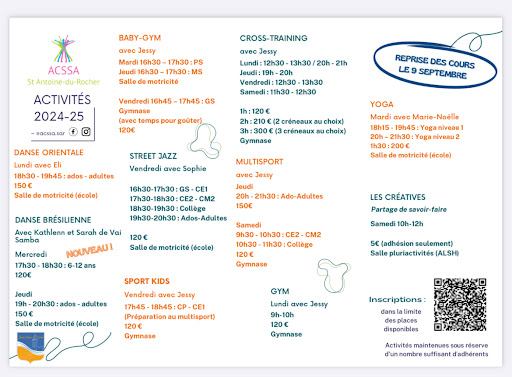 ACSSA
St Antoine-du-Rocher
ACTIVITÉS
2024-25
#acssa.sar
DANSE ORIENTALE
Lundi avec Eli
18h30 - 19h45 : ados - adultes
150 €
Salle de motricité (école)
DANSE BRÉSILIENNE
Avec Kathlenn et Sarah de Vai
Samba
NOUVEAU !
Mercredi
17h30 - 18h30 : 6-12 ans
120€
Jeudi
19h - 20h30 : ados - adultes
150 €
Salle de motricité (école)
BABY-GYM
avec Jessy
Mardi 16h30 – 17h30 : PS
Jeudi 16h30 – 17h30 : MS
Salle de motricité
Vendredi 16h45 – 17h45 : GS
Gymnase
(avec temps pour goûter)
120€
STREET JAZZ
Vendredi avec Sophie
16h30-17h30 : GS - CE1
17h30-18h30 : CE2 - CM2
18h30-19h30 : Collège
19h30-20h30 : Ados-Adultes
120 €
Salle de motricité (école)
SPORT KIDS
Vendredi avec Jessy
17h45 - 18h45 : CP - CE1
(Préparation au multisport)
120 €
Gymnase
CROSS-TRAINING
avec Jessy
Lundi : 12h30 - 13h30 / 20h - 21h
Jeudi : 19h - 20h
Vendredi : 12h30 - 13h30
Samedi : 11h30 - 12h30
1h : 120 €
2h : 210 € (2 créneaux au choix)
3h : 300 € (3 créneaux au choix)
Gymnase
MULTISPORT
avec Jessy
Jeudi
20h - 21h30 : Ado-Adultes
150€
Samedi
9h30 - 10h30 : CE2 - CM2
10h30 - 11h30 : Collège
120 €
Gymnase
GYM
Lundi avec Jessy
9h-10h
120 €
Gymnase
REPRISE DES COURS
LE 9 SEPTEMBRE
YOGA
Mardi avec Marie-Noëlle
18h15 - 19h45 : Yoga niveau 1
20h – 21h30 : Yoga niveau 2
1h30 : 200 €
Salle de motricité (école)
LES CRÉATIVES
Partage de savoir-faire
Samedi 10h-12h
5€ (adhésion seulement)
Salle pluriactivités (ALSH)
Inscriptions :
dans la limite
des places
disponibles
Activités maintenues sous réserve
d'un nombre suffisant d'adhérents